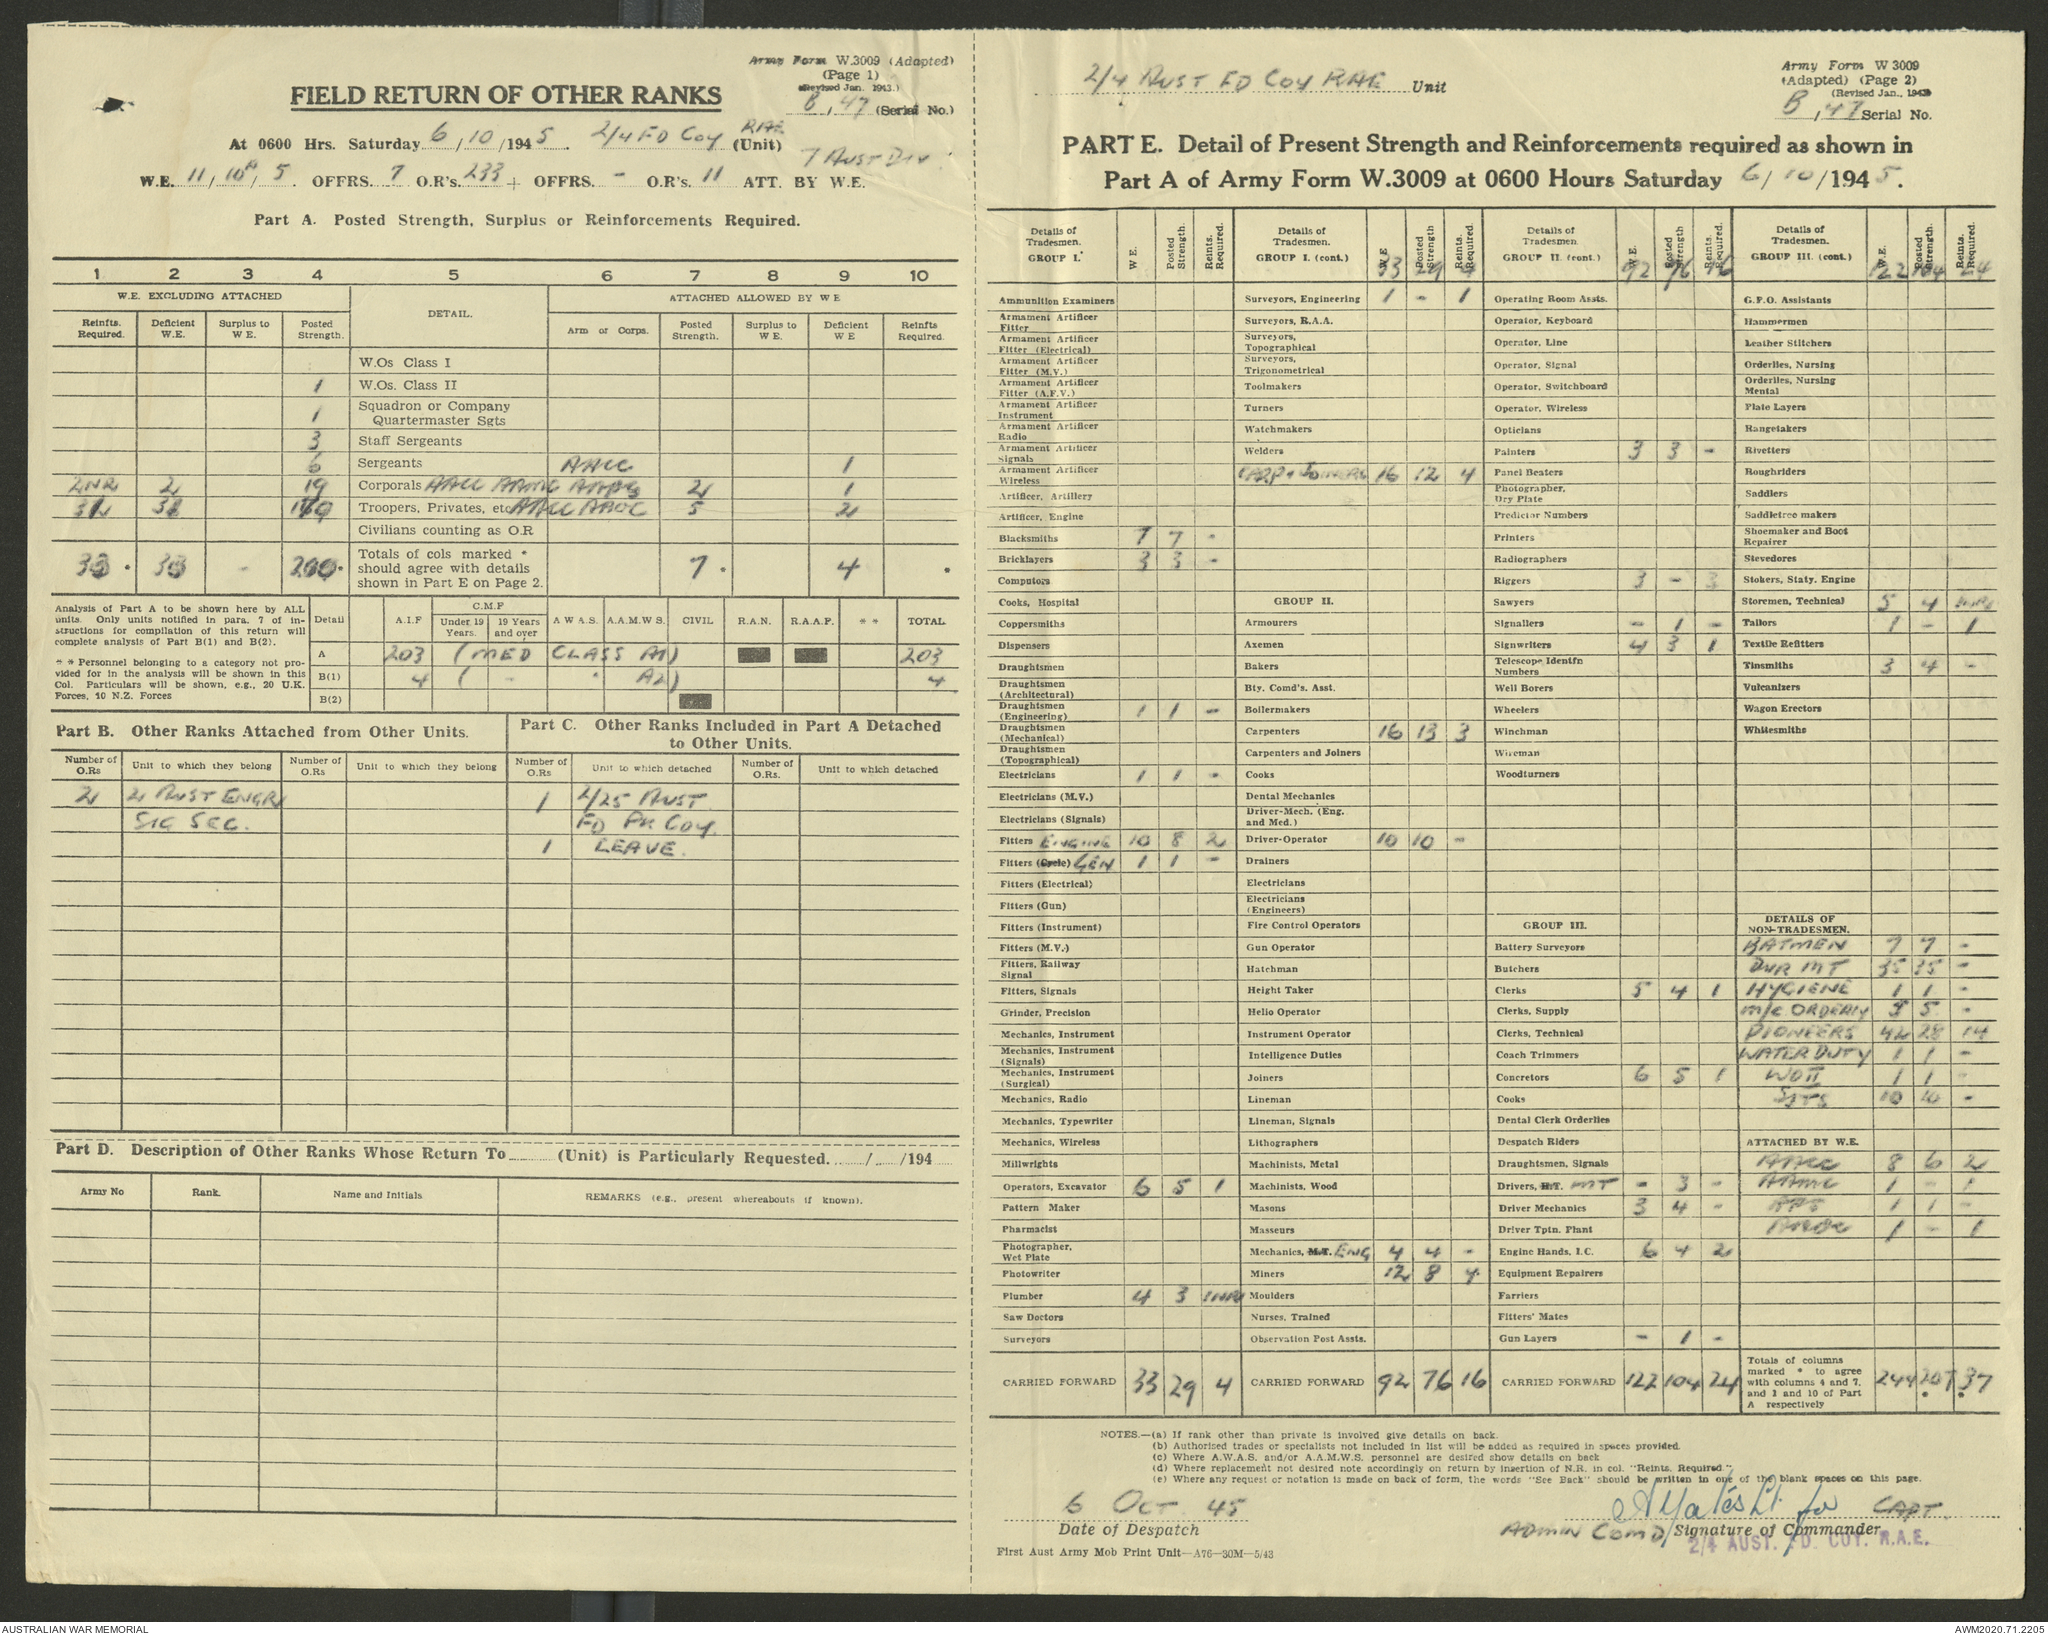 Army Form W.3009 (Adapted)
(Page 1)
(Revised Jan. 1943.)
FIELD RETURN OF OTHER RANKS
B, 47 (Serial No.)
At 0600 Hrs. Saturday 6/10/1945. 2/4 FD COY RAE (Unit)
7 AUST DIV
W.E. 11/10A/5. OFFRS. 7 O.R's. 233 + OFFRS. - O.R's. 11 ATT. BY W.E.
Part A. Posted Strength, Surplus or Reinforcements Required.
1 2 3 4 5 6 7 8 9 10
W.E. EXCLUDING ATTACHED DETAIL. ATTACHED ALLOWED BY W E
Reinfts. Required. Deficient W.E. Surplus to W E. Posted Strength. Arm or Corps. Posted Strength. Surplus to W E. Deficient W E Reinfts Required.
W.Os Class I
1 W.Os. Class II
1 Squadron or Company Quartermaster Sgts
3 Staff Sergeants
6 Sergeants AACC 1
2NR 2 19 Corporals AACC AAMC 2 1
Troopers, Privates, etc AACC AAOC 5 2
Civilians counting as O.R
- 200 Totals of cols marked * should agree with details shown in Part E on Page 2. 7 4
Analysis of Part A to be shown here by ALL units. Only units notified in para. 7 of instructions for compilation of this return will complete analysis of Part B(1) and B(2).
** Personnel belonging to a category not provided for in the analysis will be shown in this Col. Particulars will be shown, e.g., 20 U.K. Forces, 10 N.Z. Forces
Detail A.I.F C.M.F Under 19 Years. 19 Years and over A W A S. A.A.M.W S. CIVIL R.A.N. R.A.A.F. * * TOTAL
A 203 (MED CLASS A1) 203
B(1) 4 ( - " A2) 4
B(2)
Part B. Other Ranks Attached from Other Units.
Part C. Other Ranks Included in Part A Detached to Other Units.
Number of O.Rs Unit to which they belong Number of O.Rs Unit to which they belong Number of O.Rs Unit to which detached Number of O.Rs. Unit to which detached
2 2 AUST ENGR 1 2/25 AUST
SIG SEC. FD PK COY.
1 LEAVE.
Part D. Description of Other Ranks Whose Return To (Unit) is Particularly Requested. / /194
Army No Rank. Name and Initials REMARKS (e.g., present whereabouts if known).
2/4 AUST FD COY RAE Unit
Army Form W 3009
(Adapted) (Page 2)
(Revised Jan., 1943
B, 47 Serial No.
PART E. Detail of Present Strength and Reinforcements required as shown in
Part A of Army Form W.3009 at 0600 Hours Saturday 6/10/1945.
Details of Tradesmen. GROUP I. W E. Posted Strength. Reints. Required.
Ammunition Examiners
Armament Artificer Fitter
Armament Artificer Fitter (Electrical)
Armament Artificer Fitter (M.V.)
Armament Artificer Fitter (A.F.V.)
Armament Artificer Instrument
Armament Artificer Radio
Armament Artificer Signals
Armament Artificer Wireless
Artificer, Artillery
Artificer, Engine
Blacksmiths 7 7 -
Bricklayers 3 3 -
Computors
Cooks, Hospital
Coppersmiths
Dispensers
Draughtsmen
Draughtsmen (Architectural)
Draughtsmen (Engineering) 1 1 -
Draughtsmen (Mechanical)
Draughtsmen (Topographical)
Electricians 1 1 -
Electricians (M.V.)
Electricians (Signals)
Fitters ENGINE 10 8 2
Fitters (Cycle) GEN 1 1 -
Fitters (Electrical)
Fitters (Gun)
Fitters (Instrument)
Fitters (M.V.)
Fitters, Railway Signal
Fitters, Signals
Grinder, Precision
Mechanics, Instrument
Mechanics, Instrument (Signals)
Mechanics, Instrument (Surgical)
Mechanics, Radio
Mechanics, Typewriter
Mechanics, Wireless
Millwrights
Operators, Excavator 6 5 1
Pattern Maker
Pharmacist
Photographer, Wet Plate
Photowriter
Plumber 4 3 1NR
Saw Doctors
Surveyors
CARRIED FORWARD 33 29 4
Details of Tradesmen. GROUP I. (cont.) W E Posted Strength Reints. Required. 33 29 4
Surveyors, Engineering 1 - 1
Surveyors, R.A.A.
Surveyors, Topographical
Surveyors, Trigonometrical
Toolmakers
Turners
Watchmakers
Welders
CARP + JOINERS 16 12 4
GROUP II.
Armourers
Axemen
Bakers
Bty. Comd's. Asst.
Boilermakers
Carpenters 16 13 3
Carpenters and Joiners
Cooks
Dental Mechanics
Driver-Mech. (Eng. and Med.)
Driver-Operator 10 10 -
Drainers
Electricians
Electricians (Engineers)
Fire Control Operators
Gun Operator
Hatchman
Height Taker
Helio Operator
Instrument Operator
Intelligence Duties
Joiners
Lineman
Lineman, Signals
Lithographers
Machinists, Metal
Machinists, Wood
Masons
Masseurs
Mechanics, M.T. ENG 4 4 -
Miners 12 8 4
Moulders
Nurses, Trained
Observation Post Assts.
CARRIED FORWARD 92 76 16
Details of Tradesmen. GROUP II. (cont.) W E. Posted Strength Reints. Required. 92 76 16
Operating Room Assts.
Operator, Keyboard
Operator, Line
Operator, Signal
Operator, Switchboard
Operator, Wireless
Opticians
Painters 3 3 -
Panel Beaters
Photographer, Dry Plate
Predictor Numbers
Printers
Radiographers
Riggers 3 - 3
Sawyers
Signallers - 1 -
Signwriters 4 3 1
Telescope Identfn Numbers
Well Borers
Wheelers
Winchman
Wireman
Woodturners
GROUP III.
Battery Surveyors
Butchers
Clerks 5 4 1
Clerks, Supply
Clerks, Technical
Coach Trimmers
Concretors 6 5 1
Cooks
Dental Clerk Orderlies
Despatch Riders
Draughtsmen, Signals
Drivers, H.T. MT - 3 -
Driver Mechanics 3 4 -
Driver Tptn. Plant
Engine Hands, I.C. 6 4 2
Equipment Repairers
Farriers
Fitters' Mates
Gun Layers - 1 -
CARRIED FORWARD 122 104 24
Details of Tradesmen. GROUP III. (cont.) W.E. Posted Strength. Reints. Required. 122 104 24
G.P.O. Assistants
Hammermen
Leather Stitchers
Orderlies, Nursing
Orderlies, Nursing Mental
Plate Layers
Rangetakers
Rivetters
Roughriders
Saddlers
Saddletree makers
Shoemaker and Boot Repairer
Stevedores
Stokers, Staty. Engine
Storemen, Technical 5 4
Tailors 1 - 1
Textile Refitters
Tinsmiths 3 4 -
Vulcanizers
Wagon Erectors
Whitesmiths
DETAILS OF NON-TRADESMEN.
BATMEN 7 7 -
DVR MT 35 35 -
HYGIENE 1 1 -
M/C ORDERLY 5 5 -
PIONEERS 42 28 14
WATER DUTY 1 1 -
WOII 1 1 -
SJTS 10 10 -
ATTACHED BY W.E.
AACC 8 6 2
AAMC 1 - 1
1 1 -
AAOC 1 - 1
Totals of columns marked * to agree with columns 4 and 7, and 1 and 10 of Part A respectively 244 207 37
NOTES.—(a) If rank other than private is involved give details on back.
(b) Authorised trades or specialists not included in list will be added as required in spaces provided.
(c) Where A.W.A.S. and/or A.A.M.W.S. personnel are desired show details on back
(d) Where replacement not desired note accordingly on return by insertion of N.R. in col. "Reints. Required".
(e) Where any request or notation is made on back of form, the words "See Back" should be written in one of the blank spaces on this page.
6 OCT 45
Date of Despatch
AYates Lt. for CAPT.
ADMIN COMD Signature of Commander
2/4 AUST. FD. COY. R.A.E.
First Aust Army Mob Print Unit—A76—30M—5/43
AUSTRALIAN WAR MEMORIAL
AWM2020.71.2205